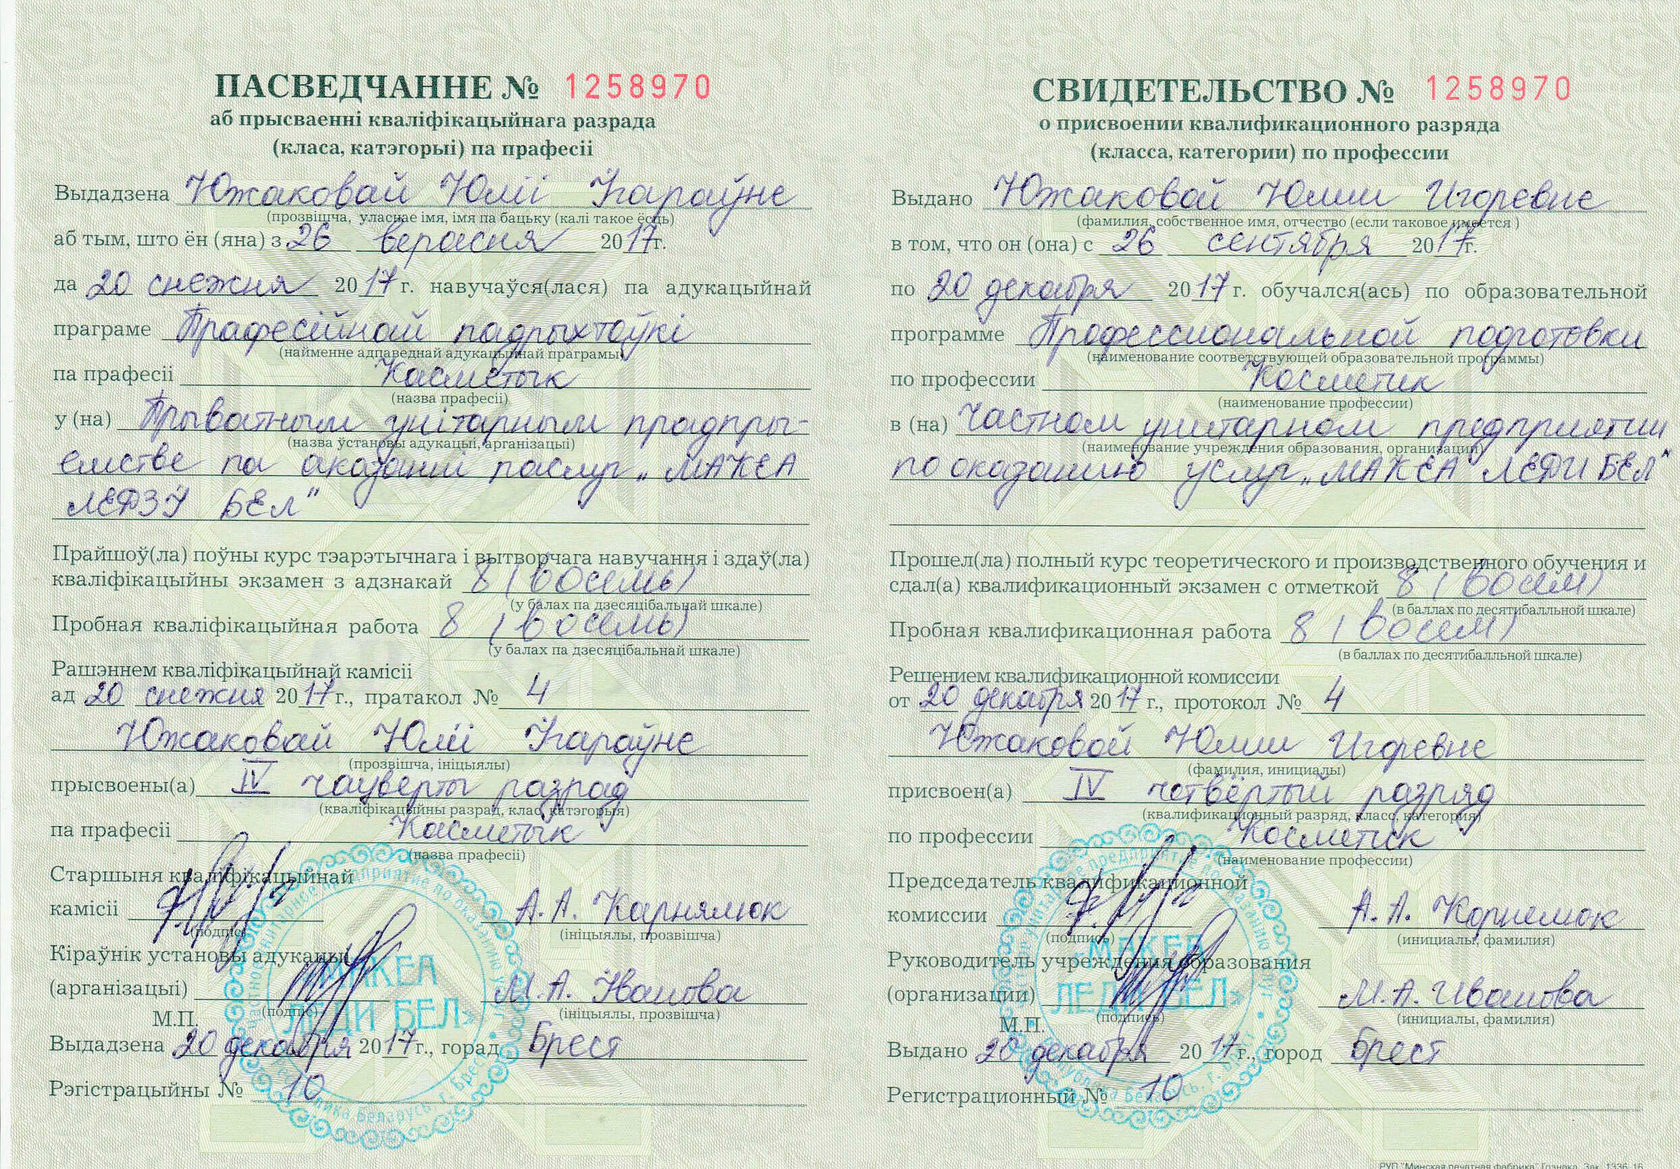 ПАСВЕДЧАННЕ № 1258970
аб прысваенні кваліфікацыйнага разрада
(класа, катэгорыі) па прафесіі
Выдадзена Южаковай Юліі Ігараўне
(прозвішча, уласнае імя, імя па бацьку (калі такое ёсць)
аб тым, што ён (яна) з 26 верасня 2017г.
да 20 снежня 2017 г. навучаўся(лася) па адукацыйнай
праграме Прафесійнай падрыхтоўкі
(найменне адпаведнай адукацыйнай праграмы)
па прафесіі Касметык
(назва прафесіі)
у (на) Прыватным унітарным прадпры-
(назва ўстановы адукацыі, арганізацыі)
емстве па аказанні паслуг „МАКЕА
ЛЕДЗІ БЕЛ"
Прайшоў(ла) поўны курс тэарэтычнага і вытворчага навучання і здаў(ла)
кваліфікацыйны экзамен з адзнакай 8 (восемь)
(у балах па дзесяцібальнай шкале)
Пробная кваліфікацыйная работа 8 (восемь)
(у балах па дзесяцібальнай шкале)
Рашэннем кваліфікацыйнай камісіі
ад 20 снежня 2017 г., пратакол № 4
Южаковай Юліі Ігараўне
(прозвішча, ініцыялы)
прысвоены(а) IV чацверты разрад
(кваліфікацыйны разрад, клас, катэгорыя)
па прафесіі Касметык
(назва прафесіі)
Старшыня кваліфікацыйнай
камісіі А.А. Карнялюк
(подпіс) (ініцыялы, прозвішча)
Кіраўнік установы адукацыі
(арганізацыі) М.А. Іванова
(подпіс) (ініцыялы, прозвішча)
М.П.
Выдадзена 20 декабря 2017г., горад Брест
Рэгістрацыйны № 10
«МАКЕА
ЛЕДИ БЕЛ»
СВИДЕТЕЛЬСТВО № 1258970
о присвоении квалификационного разряда
(класса, категории) по профессии
Выдано Южаковой Юлии Игоревне
(фамилия, собственное имя, отчество (если таковое имеется )
в том, что он (она) с 26 сентября 2017г.
по 20 декабря 2017 г. обучался(ась) по образовательной
программе Профессиональной подготовки
(наименование соответствующей образовательной программы)
по профессии Косметик
(наименование профессии)
в (на) Частном унитарном предприятии
(наименование учреждения образования, организации)
по оказанию услуг „МАКЕА ЛЕДИ БЕЛ"
Прошел(ла) полный курс теоретического и производственного обучения и
сдал(а) квалификационный экзамен с отметкой 8 (восем)
(в баллах по десятибалльной шкале)
Пробная квалификационная работа 8 (восем)
(в баллах по десятибалльной шкале)
Решением квалификационной комиссии
от 20 декабря 2017 г., протокол № 4
Южаковой Юлии Игоревне
(фамилия, инициалы)
присвоен(а) IV четвёртый разряд
(квалификационный разряд, класс, категория)
по профессии Косметик
(наименование профессии)
Председатель квалификационной
комиссии А.А. Корнелюк
(подпись) (инициалы, фамилия)
Руководитель учреждения образования
(организации) М.А. Иванова
(подпись) (инициалы, фамилия)
М.П.
Выдано 20 декабря 2017г., город Брест
Регистрационный № 10
«МАКЕА
ЛЕДИ БЕЛ»
РУП "Минская печатная фабрика" Гознака. Зак. 1336-16